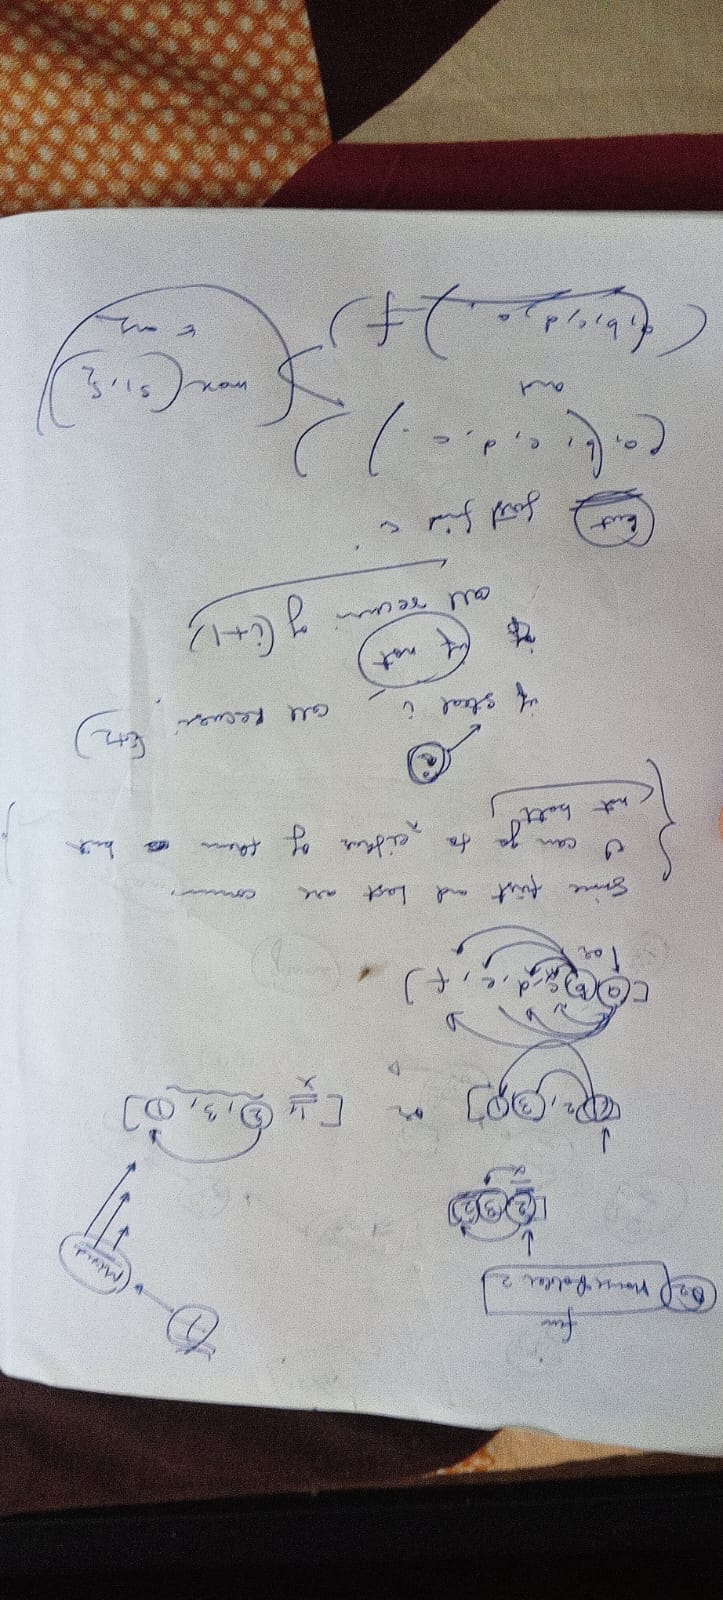 fun
Q2 House Robber 2
[2 3 2]
x
[1 2, 3 1] or [1, 2, 3, 1]
x
[a b c, d, e, f]
or
Since first and last are
I can go to either of them but
not both
i
if steal i, call recursi (i+2)
if not
call recursi of (i+1)
but first find
(a, (b, c, d, e.))
and max (S1, S2)
b, c, d, f)